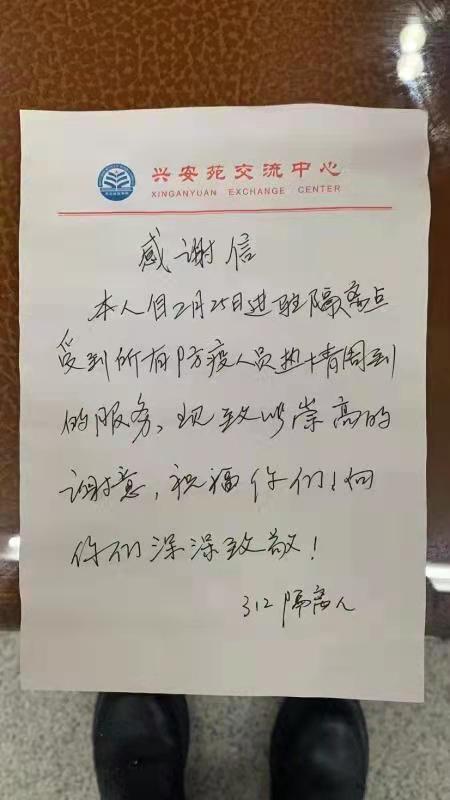 兴安苑交流中心
XINGANYUAN EXCHANGE CENTER
感谢信
本人自2月25日进驻隔离点
受到所有防疫人员热情周到
的服务、现致以崇高的
谢意，祝福你们！向
你们深深致敬！
312隔离人